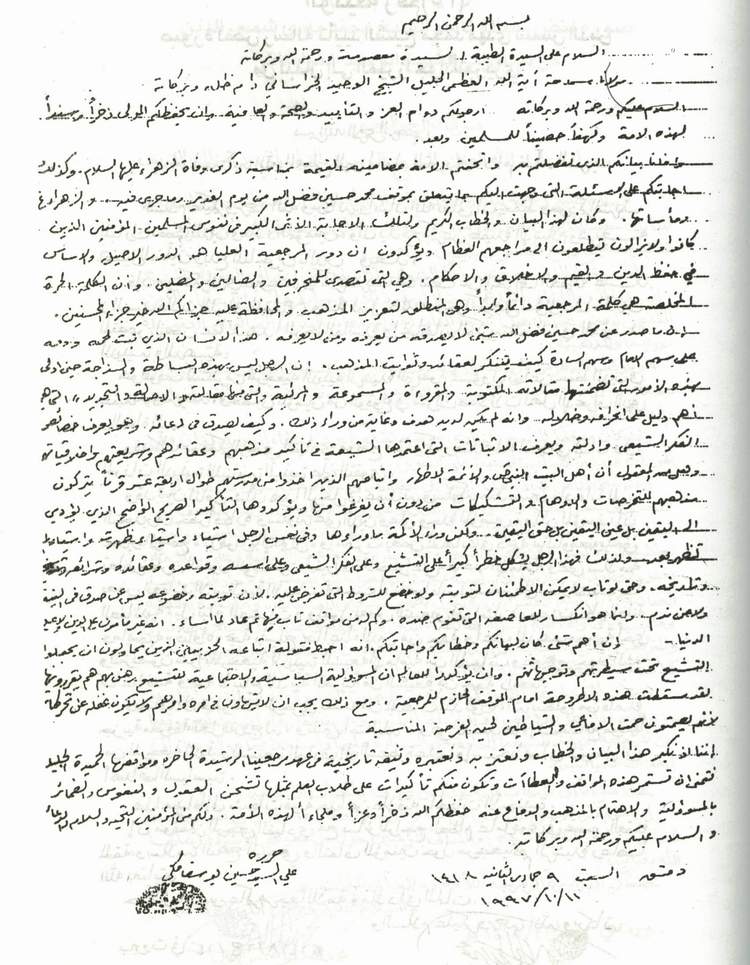 بسم الله الرحمن الرحيم
السلام على السيدة الطيبة السيدة معصومة ورحمة الله وبركاته
مولانا سماحة آية الله العظمى الجليل الشيخ الوحيد الخراساني دام ظله وبركاته
السلام عليكم ورحمة الله وبركاته ارجو لكم دوام العز والتأييد والصحة والعافية وان يحفظكم المولى ذخراً وسنداً
لهذه الامة وكهفاً حصيناً للمسلمين وبعد.
وصلنا بيانكم الذي تفضلتم به وأتحفتم الامة مضامينه القيمة بمناسبة ذكرى وفاة الزهراء عليها السلام. وكذلك
اجابتكم على الاسئلة التي وجهت اليكم بما يتعلق بموقف محمد حسين فضل الله من يوم الغدير وما جرى فيه. والزهراء ع
ومأساتها. وكان لهذا البيان والخطاب الكريم ولتلك الاجابة الأثر الكبير في نفوس المسلمين المؤمنين الذين
كانوا ولا يزالون يتطلعون الى مراجعهم العظام ويؤكدون ان دور المرجعية العليا هو الدور الاصيل والاساس
في حفظ الدين والقيم والاخلاق والاحكام. وهي التي تتصدى للمنحرفين والضالين والمضلين. وان الكلمة الحرة
المخلصة هي كلمة المرجعية دائماً وأبداً وهي المنطلق لتعزيز المذهب والمحافظة عليه جزاكم الله خير جزاء المحسنين.
ان ما صدر عن محمد حسين فضل الله شيء لا يصدقه من يعرفه ومن لا يعرفه. هذا الانسان الذي نبت لحمه ودمه
على سهم الامام وسهم السادة كيف يتنكر لعقائد وثوابت المذهب. إن الرجل ليس بهذه البساطة والسذاجة حين ادلى
بهذه الأمور التي تضمنتها مقالاته المكتوبة والمقروءة والمسموعة والمرئية والتي الاصالة والتجديد التي هي
أهم دليل على انحرافه وضلاله وانه لم يكن لديه هدف وغاية من وراء ذلك. وكيف يصدق في ادعائه. وهو يعرف خصائص
الفكر الشيعي وادلته ويعرف الاثباتات التي اعتمدها الشيعة في تأكيد مذهبهم وعقائدهم وشريعتهم واخلاقياتهم
وهل من المعقول أن أهل البيت النبي ص والأئمة الاطهار واتباعهم الذين اخذوا من مدرستهم طوال اربعة عشر قرناً يتركون
مذهبهم للتخرصات والاوهام والتشكيكات من دون أن يفرغوا منها ويؤكدوها التأكيد الصريح الواضح الذي يؤدي
الى اليقين بل عين اليقين بل حق اليقين. ولكن وراء الأكمة ما وراءها وفي نفس الرجل اشياء واشياء ظهرت واشياء لم
تظهر بعد. ولذلك فهذا الرجل يشكل خطراً كبيراً على التشيع وعلى الفكر الشيعي وعلى اسسه وقواعده وعقائده وشرائعه
وتاريخه. وحتى لو تاب لا يمكن الاطمئنان لتوبته ولو خضع للشروط التي تفرض عليه. لأن توبته وخضوعه ليس عن صدق في النية
ولا عن ندم. وانما هو انكسار للعاصفة التي تقوم ضده. وكم له من مواقف تاب فيها ثم عاد لما أساء.
الدنيا. إن أهم شيء كان لبيانكم وخطابكم واجابتكم. انه احبط مقولة اتباعه الحزبيين الذين يحاولون ان يجعلوا
التشيع تحت سيطرتهم وتوجيهاتهم. وان يؤكدوا للعالم ان المسؤولية السياسية والاجتماعية للتشيع هم يقررونها
لقد سقطت هذه الاطروحة امام الموقف الحازم للمرجعية. ومع ذلك يجب ان لا يتهاون في امره
يصمتون صمت الافاعي والشياطين لحين الفرصة المناسبة
إننا اذ نكبر هذا البيان والخطاب ونعتز به ونعتبره وثيقة تاريخية في عهد مرجعيتنا الرشيدة الحاضرة ومواقفها الحميدة الجليلة
نتمنى ان تستمر هذه المواقف والعطاءات وتكون منكم تأكيدات على طلاب العلم بمثلها تشحن العقول والنفوس والضمائر
بالمسؤولية والاهتمام بالمذهب والدفاع عنه حفظكم الله ذخراً وعزاً وملجأ لهذه الأمة. ولكم من المؤمنين التحية والسلام والدعاء
والسلام عليكم ورحمة الله وبركاته.
دمشق السبت ٩ جمادى الثانية ١٤١٨
١٩٩٧/١٠/١١
حرره
علي السيد حسين يوسف مكي